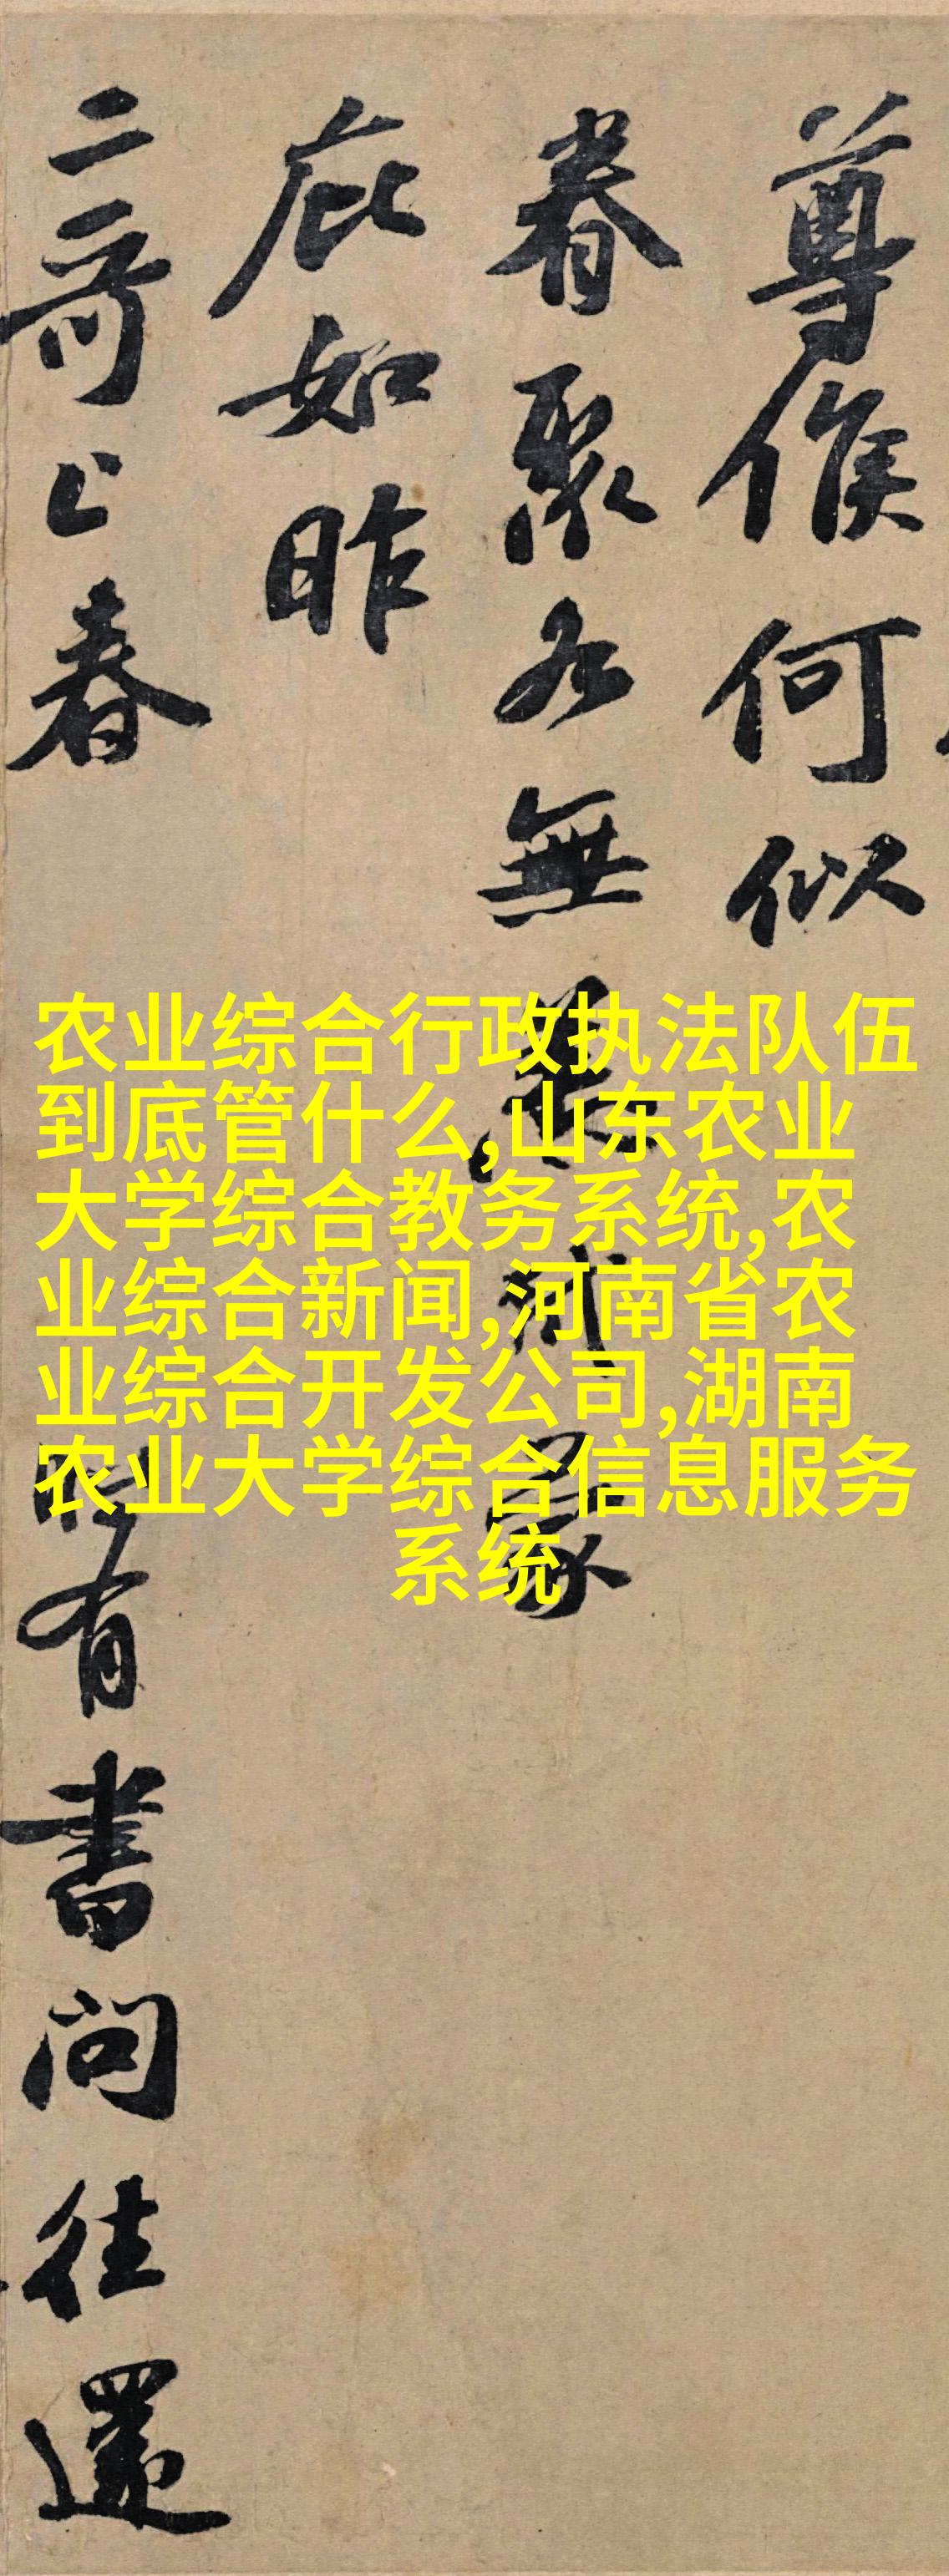 尊候何似
眷聚各無恙減蒙
庇如昨
二哥上春
時有書問往還
农业综合行政执法队伍
到底管什么,山东农业
大学综合教务系统,农
业综合新闻,河南省农
业综合开发公司,湖南
农业大学综合信息服务
系统